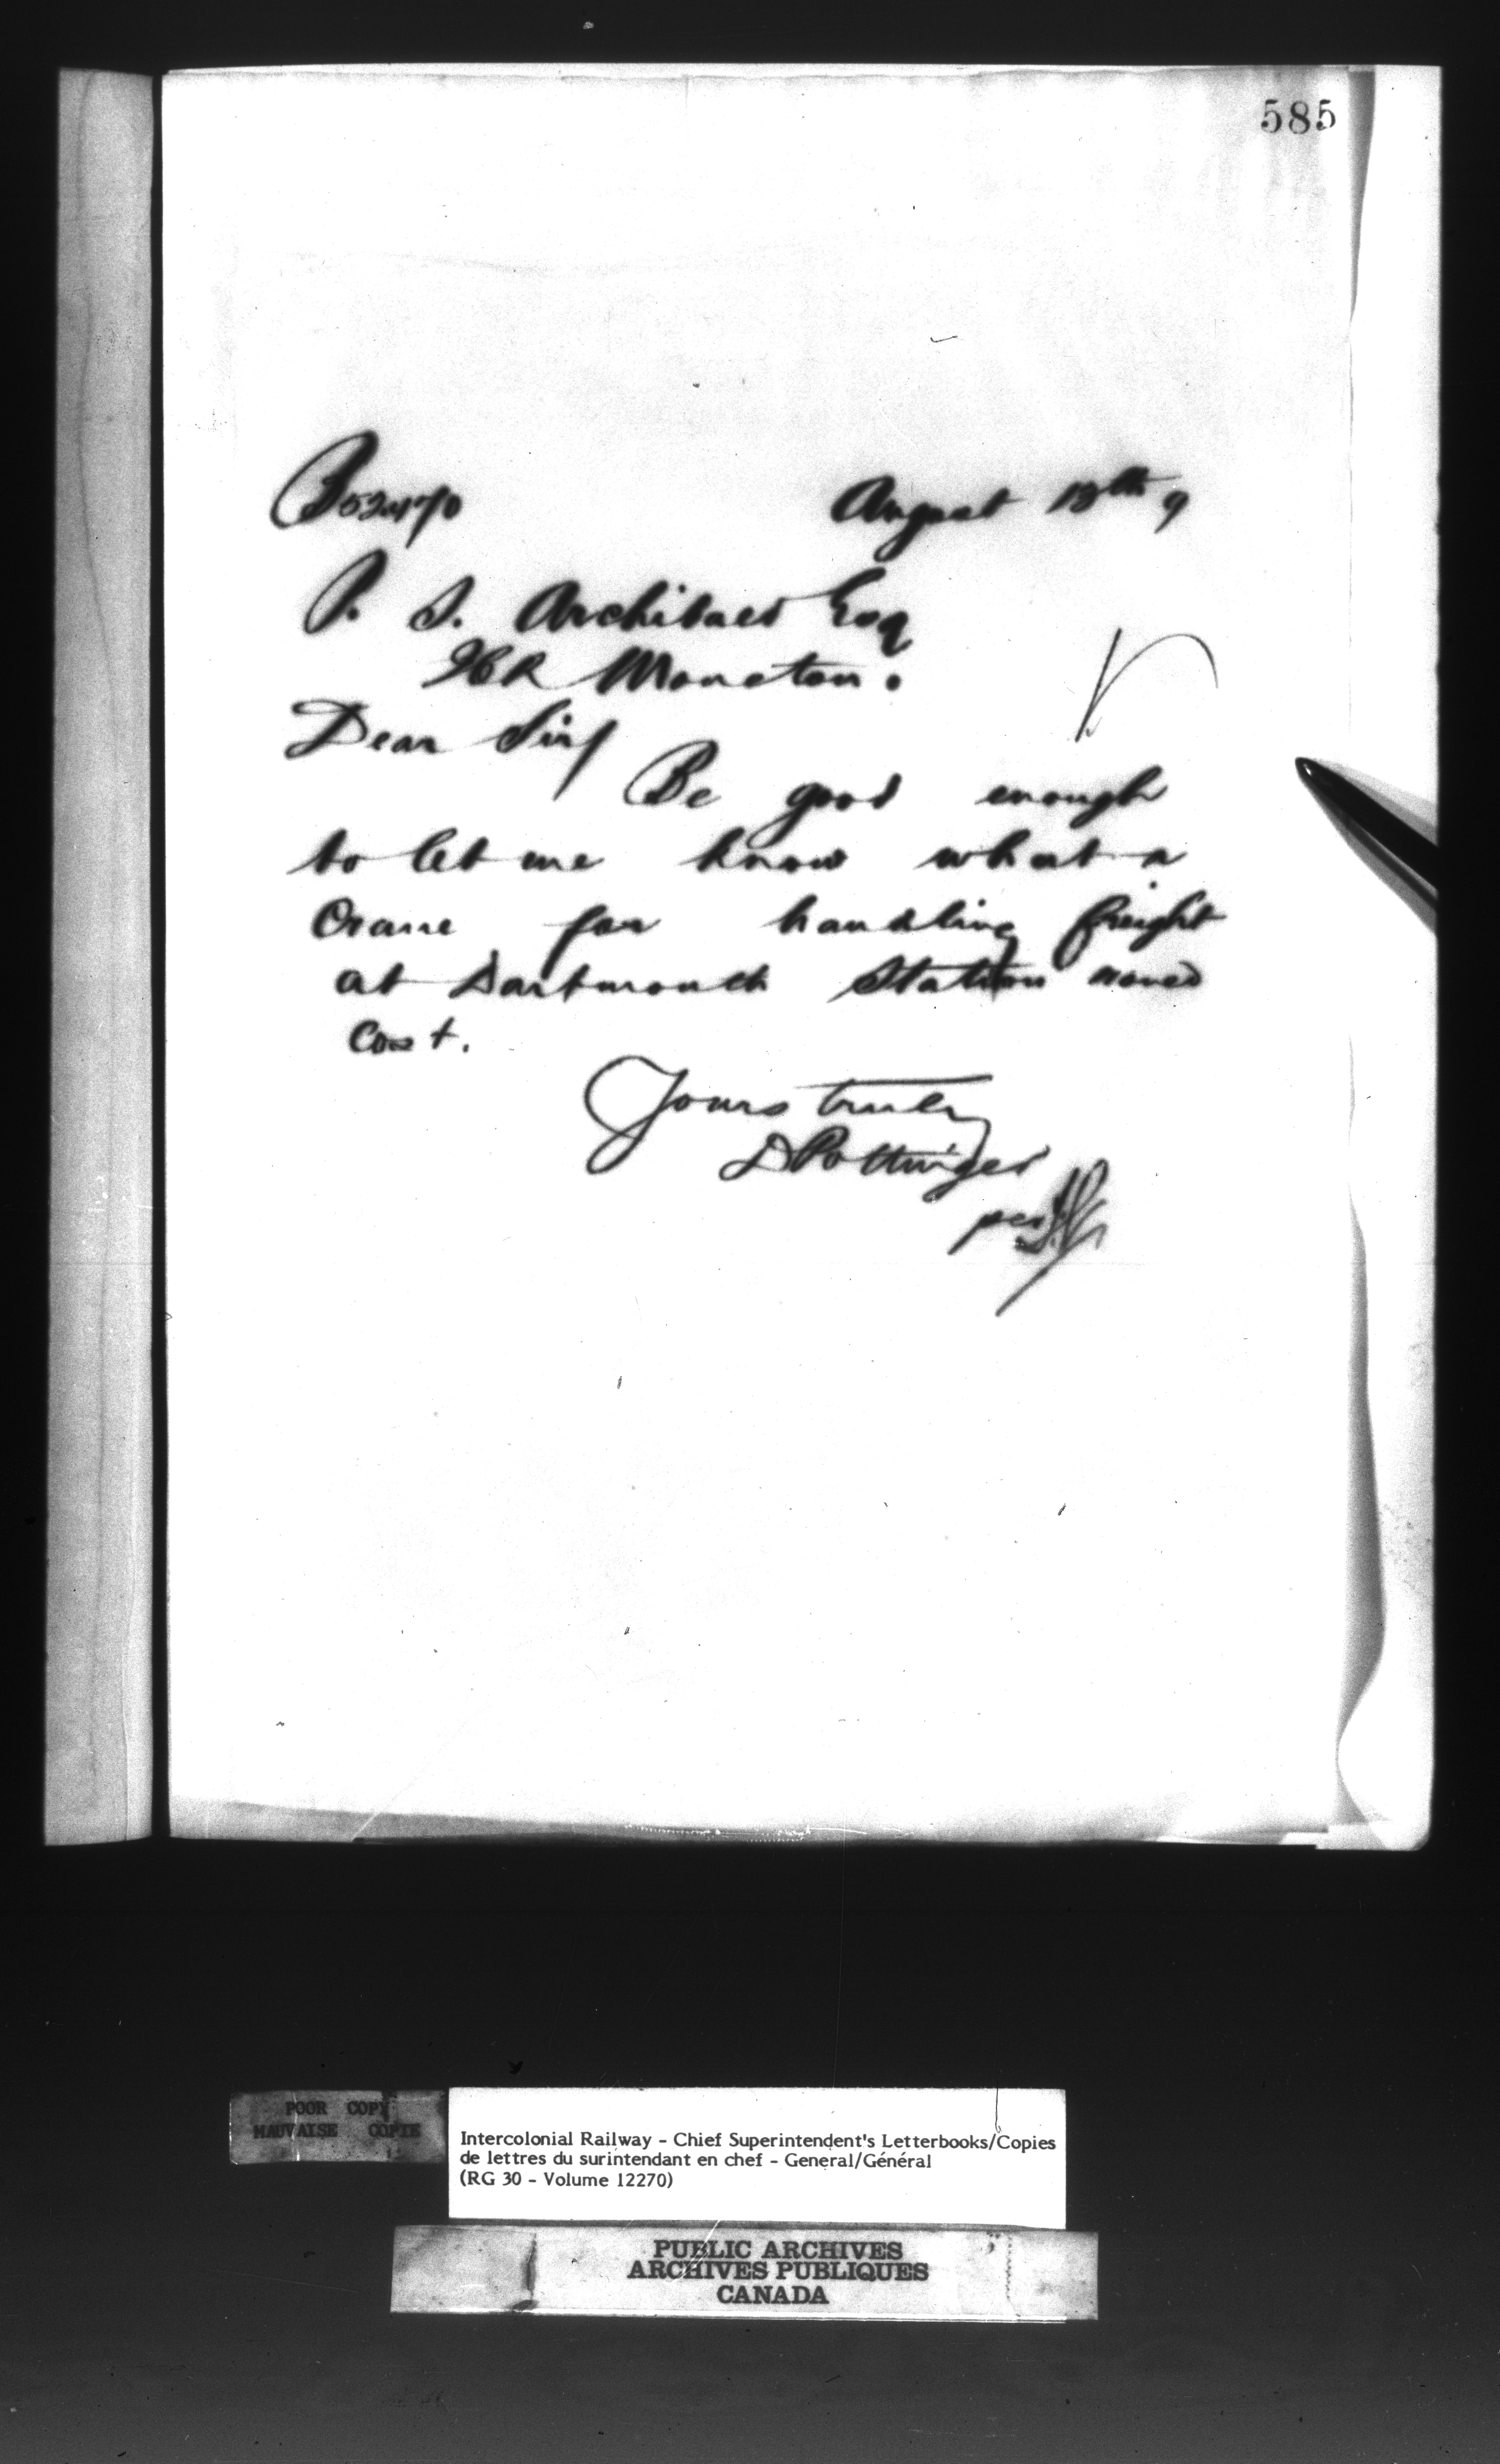 585
B52470 August 13th 9
P. S. Archibald Esq
ICR Moncton.
Dear Sir/
Be good enough
to let me know what a
Crane for handling freight
at Dartmouth Station would
cost.
Yours truly
D Pottinger
per
POOR COPY
MAUVAISE COPIE
Intercolonial Railway - Chief Superintendent's Letterbooks/Copies
de lettres du surintendant en chef - General/Général
(RG 30 - Volume 12270)
PUBLIC ARCHIVES
ARCHIVES PUBLIQUES
CANADA